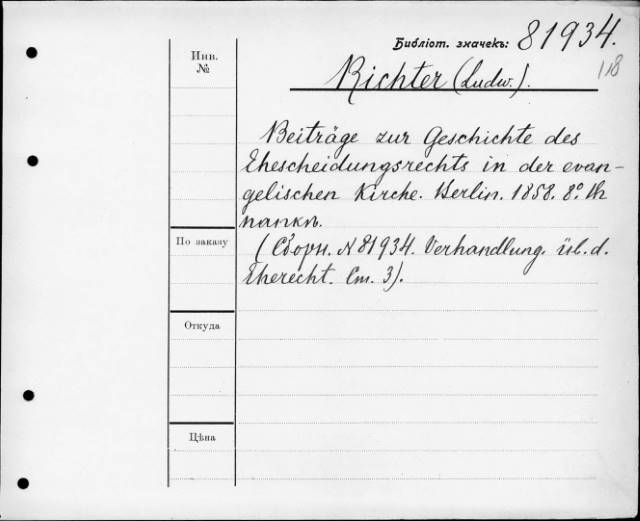 Библіот. значекъ: 81934.
118
Инв. №
Richter (Ludw.).
Beiträge zur Geschichte des
Ehescheidungsrechts in der evan-
gelischen Kirche. Berlin. 1858. 8º. Въ
папкѣ.
По заказу
(Сборн. № 81934. Verhandlung. üb. d.
Eherecht. Ст. 3).
Откуда
Цѣна